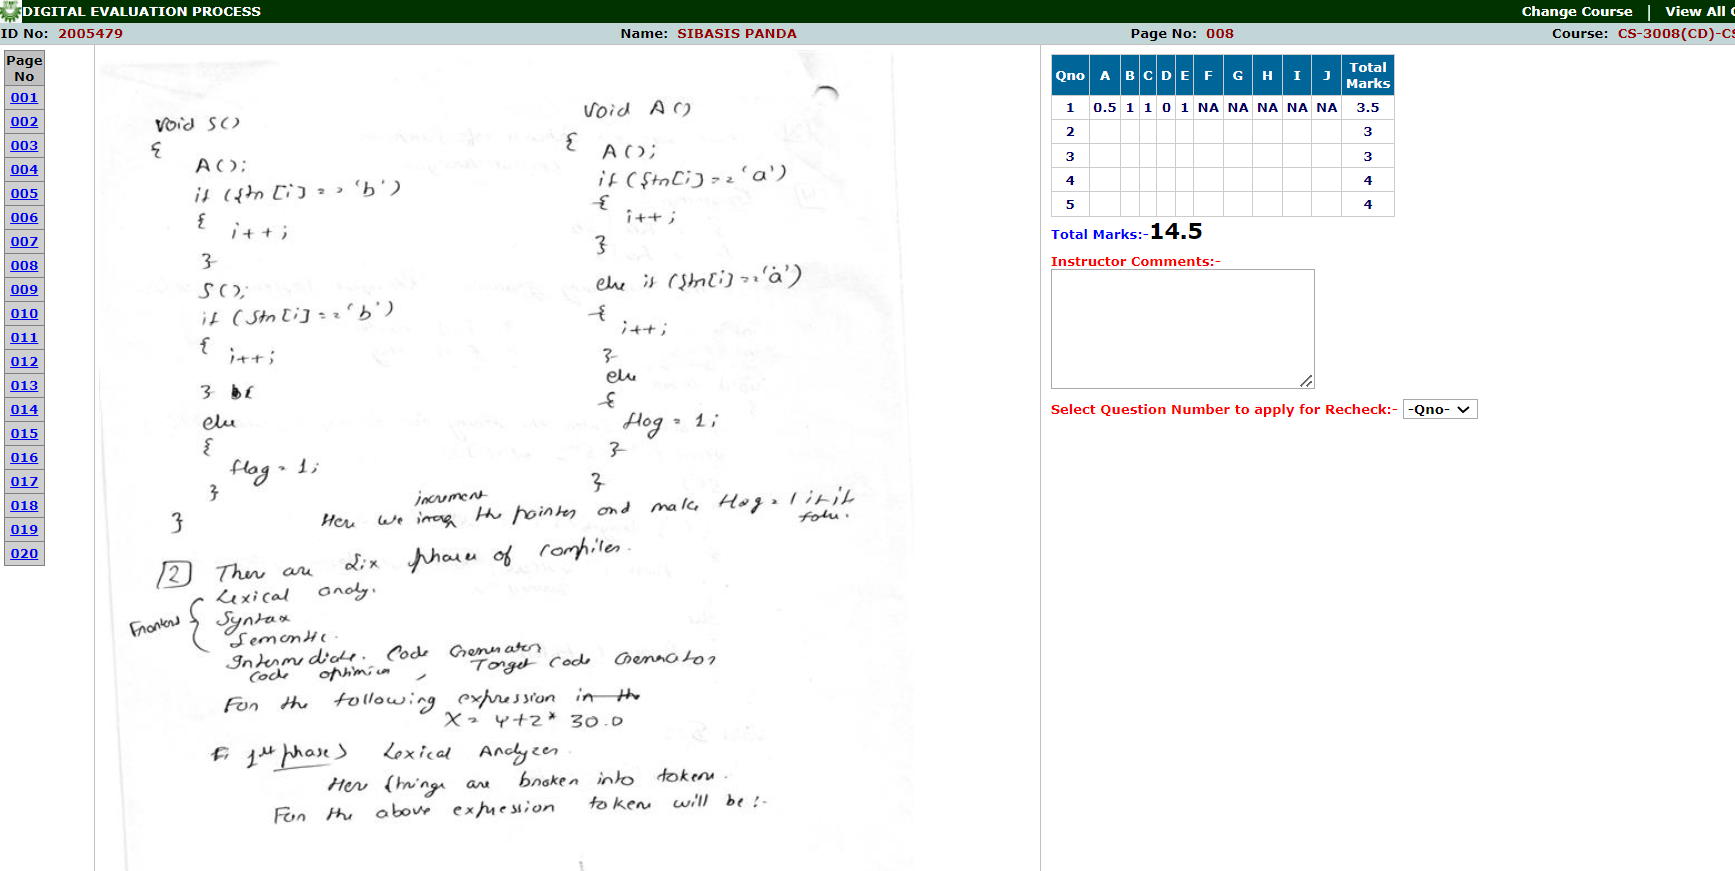 DIGITAL EVALUATION PROCESS
Change Course | View All
ID No: 2005479 Name: SIBASIS PANDA Page No: 008 Course: CS-3008(CD)-CS
Page No
001
002
003
004
005
006
007
008
009
010
011
012
013
014
015
016
017
018
019
020
void S()
{
A();
if (Stn[i] == 'b')
{
i++;
}
S();
if (Stn[i] == 'b')
{
i++;
}
else
{
flag = 1;
}
}
void A()
{
A();
if (Stn[i] == 'a')
{
i++;
}
else if (Stn[i] == 'a')
{
i++;
}
else
{
flag = 1;
}
}
increment
Here we the pointer and make flag = 1 if it
false.
2 There are six phases of compiler.
Lexical analy.
Frontend { Syntax
Semantic.
Intermediate. Code Generator
Code , Target Code Generator
For the following expression in the
X = Y+Z* 30.0
1st phase) Lexical Analyzer.
Here strings are broken into token.
For the above expression token will be :-
Qno A B C D E F G H I J Total Marks
1 0.5 1 1 0 1 NA NA NA NA NA 3.5
2 3
3 3
4 4
5 4
Total Marks:-14.5
Instructor Comments:-
Select Question Number to apply for Recheck:- -Qno-